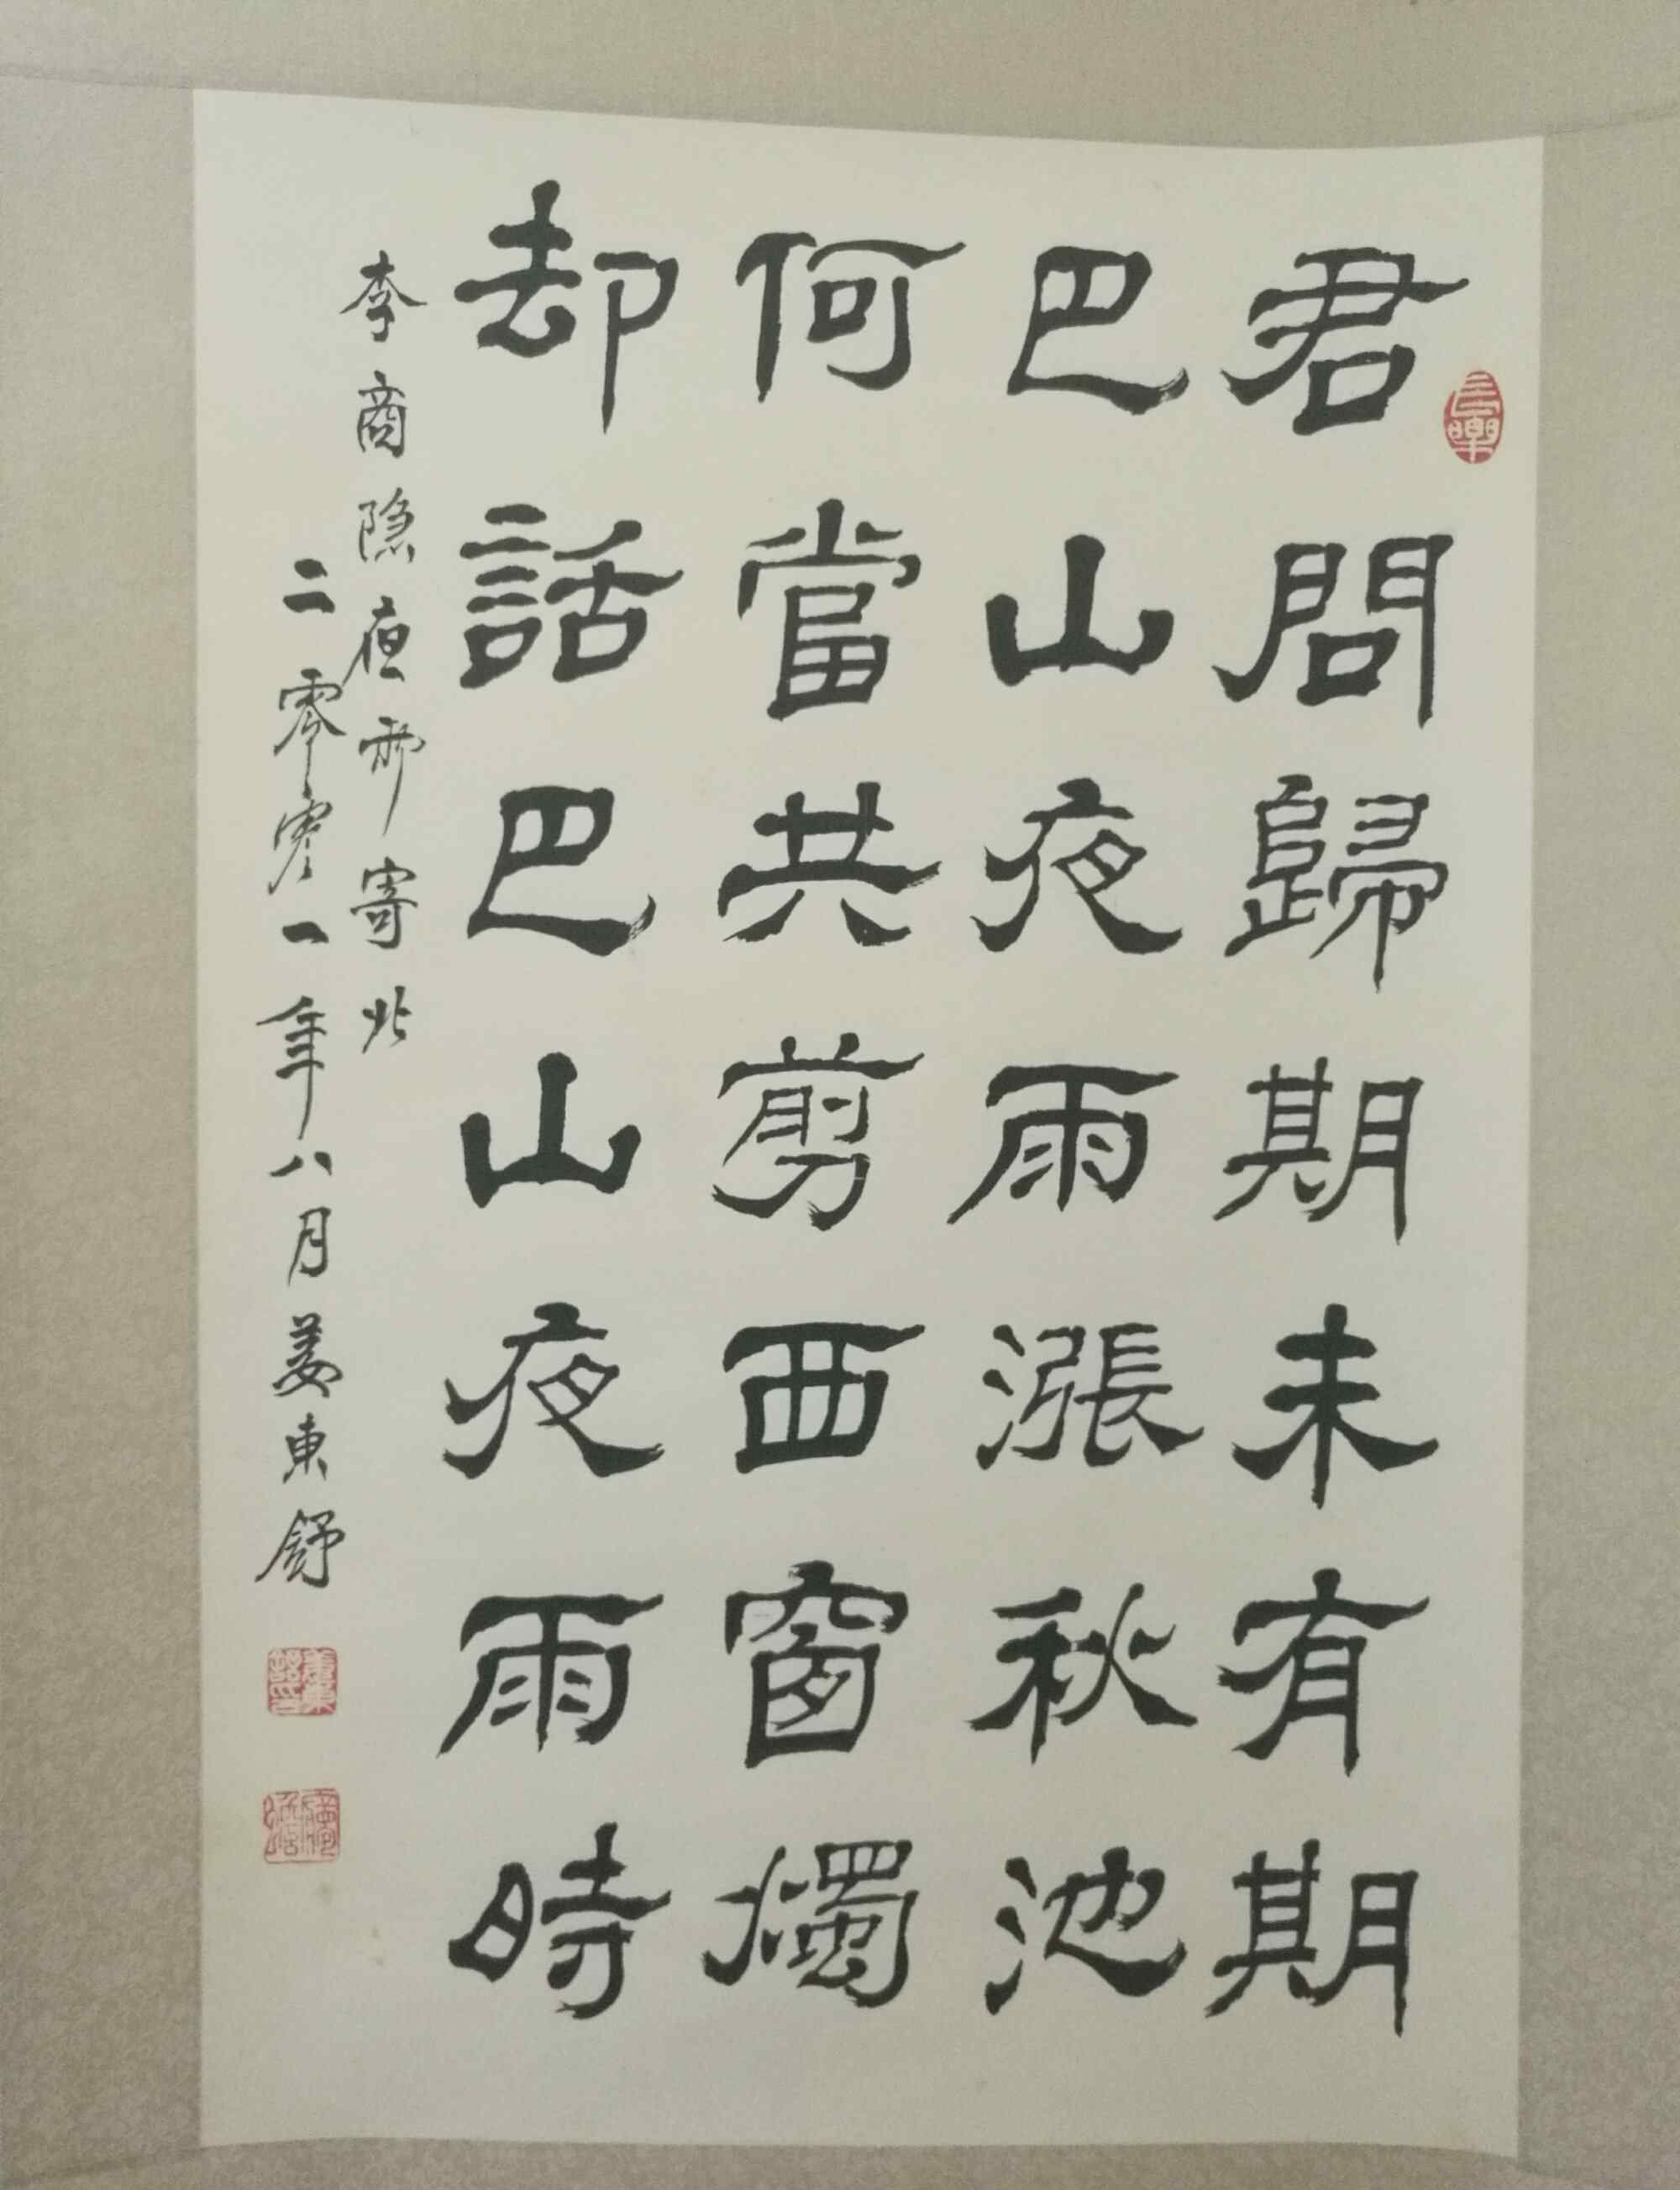 君問歸期未有期
巴山夜雨漲秋池
何當共剪西窗燭
却話巴山夜雨時
李商隐夜雨寄北
二零零一年八月姜東舒